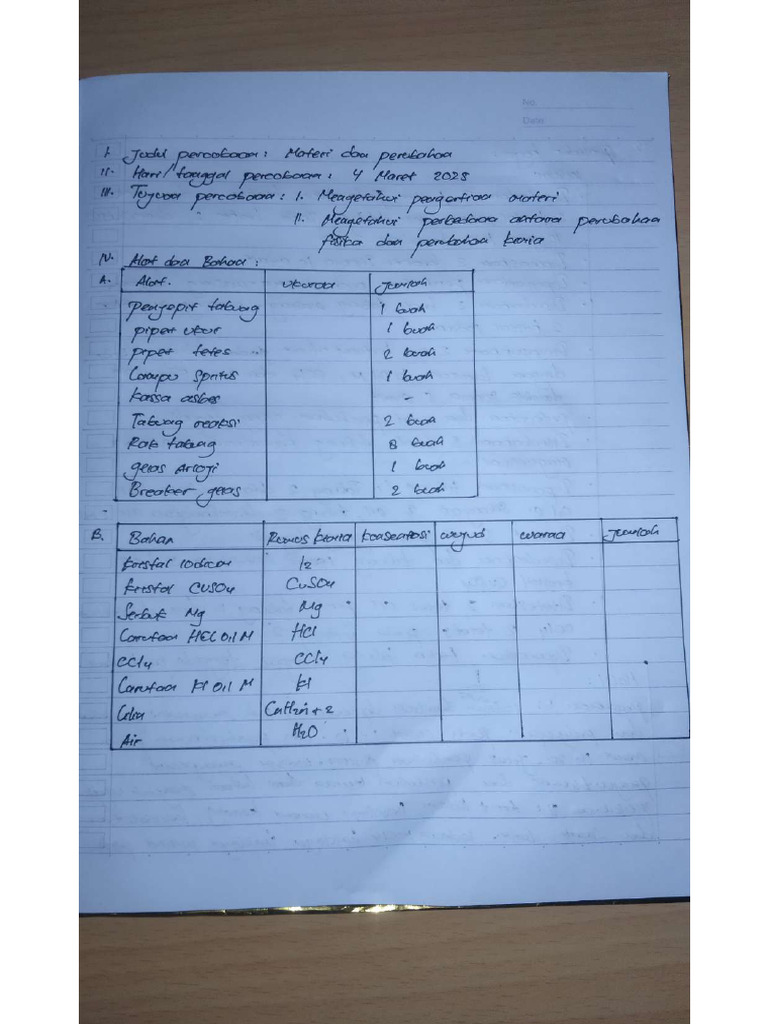 No.
Date
I. Judul percobaan : Materi dan perubahan
II. Hari/tanggal percobaan : 4 Maret 2025
III. Tujuan percobaan : 1. Mengetahui pengertian materi
II. Mengetahui perbedaan antara perubahan
fisika dan perubahan kimia
IV. Alat dan Bahan :
A. Alat. Ukuran Jumlah
Penjepit tabung 1 buah
pipet ukur 1 buah
pipet tetes 2 buah
Lampu spritus 1 buah
kassa asbes -
Tabung reaksi 2 buah
Rak tabung 8 buah
gelas Arloji 1 buah
Breaker gelas 2 buah
B. Bahan Rumus kimia konsentrasi wujud warna Jumlah
kristal Iodium I2
kristal CuSO4 CuSO4
Serbuk Mg Mg
Larutan HCl 0,1 M HCl
CCl4 CCl4
Larutan KI 0,1 M KI
Lilin CnH2n+2
Air H2O